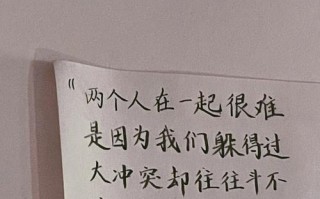 “两个人在一起很难
是因为我们躲得过
大冲突却往往斗不